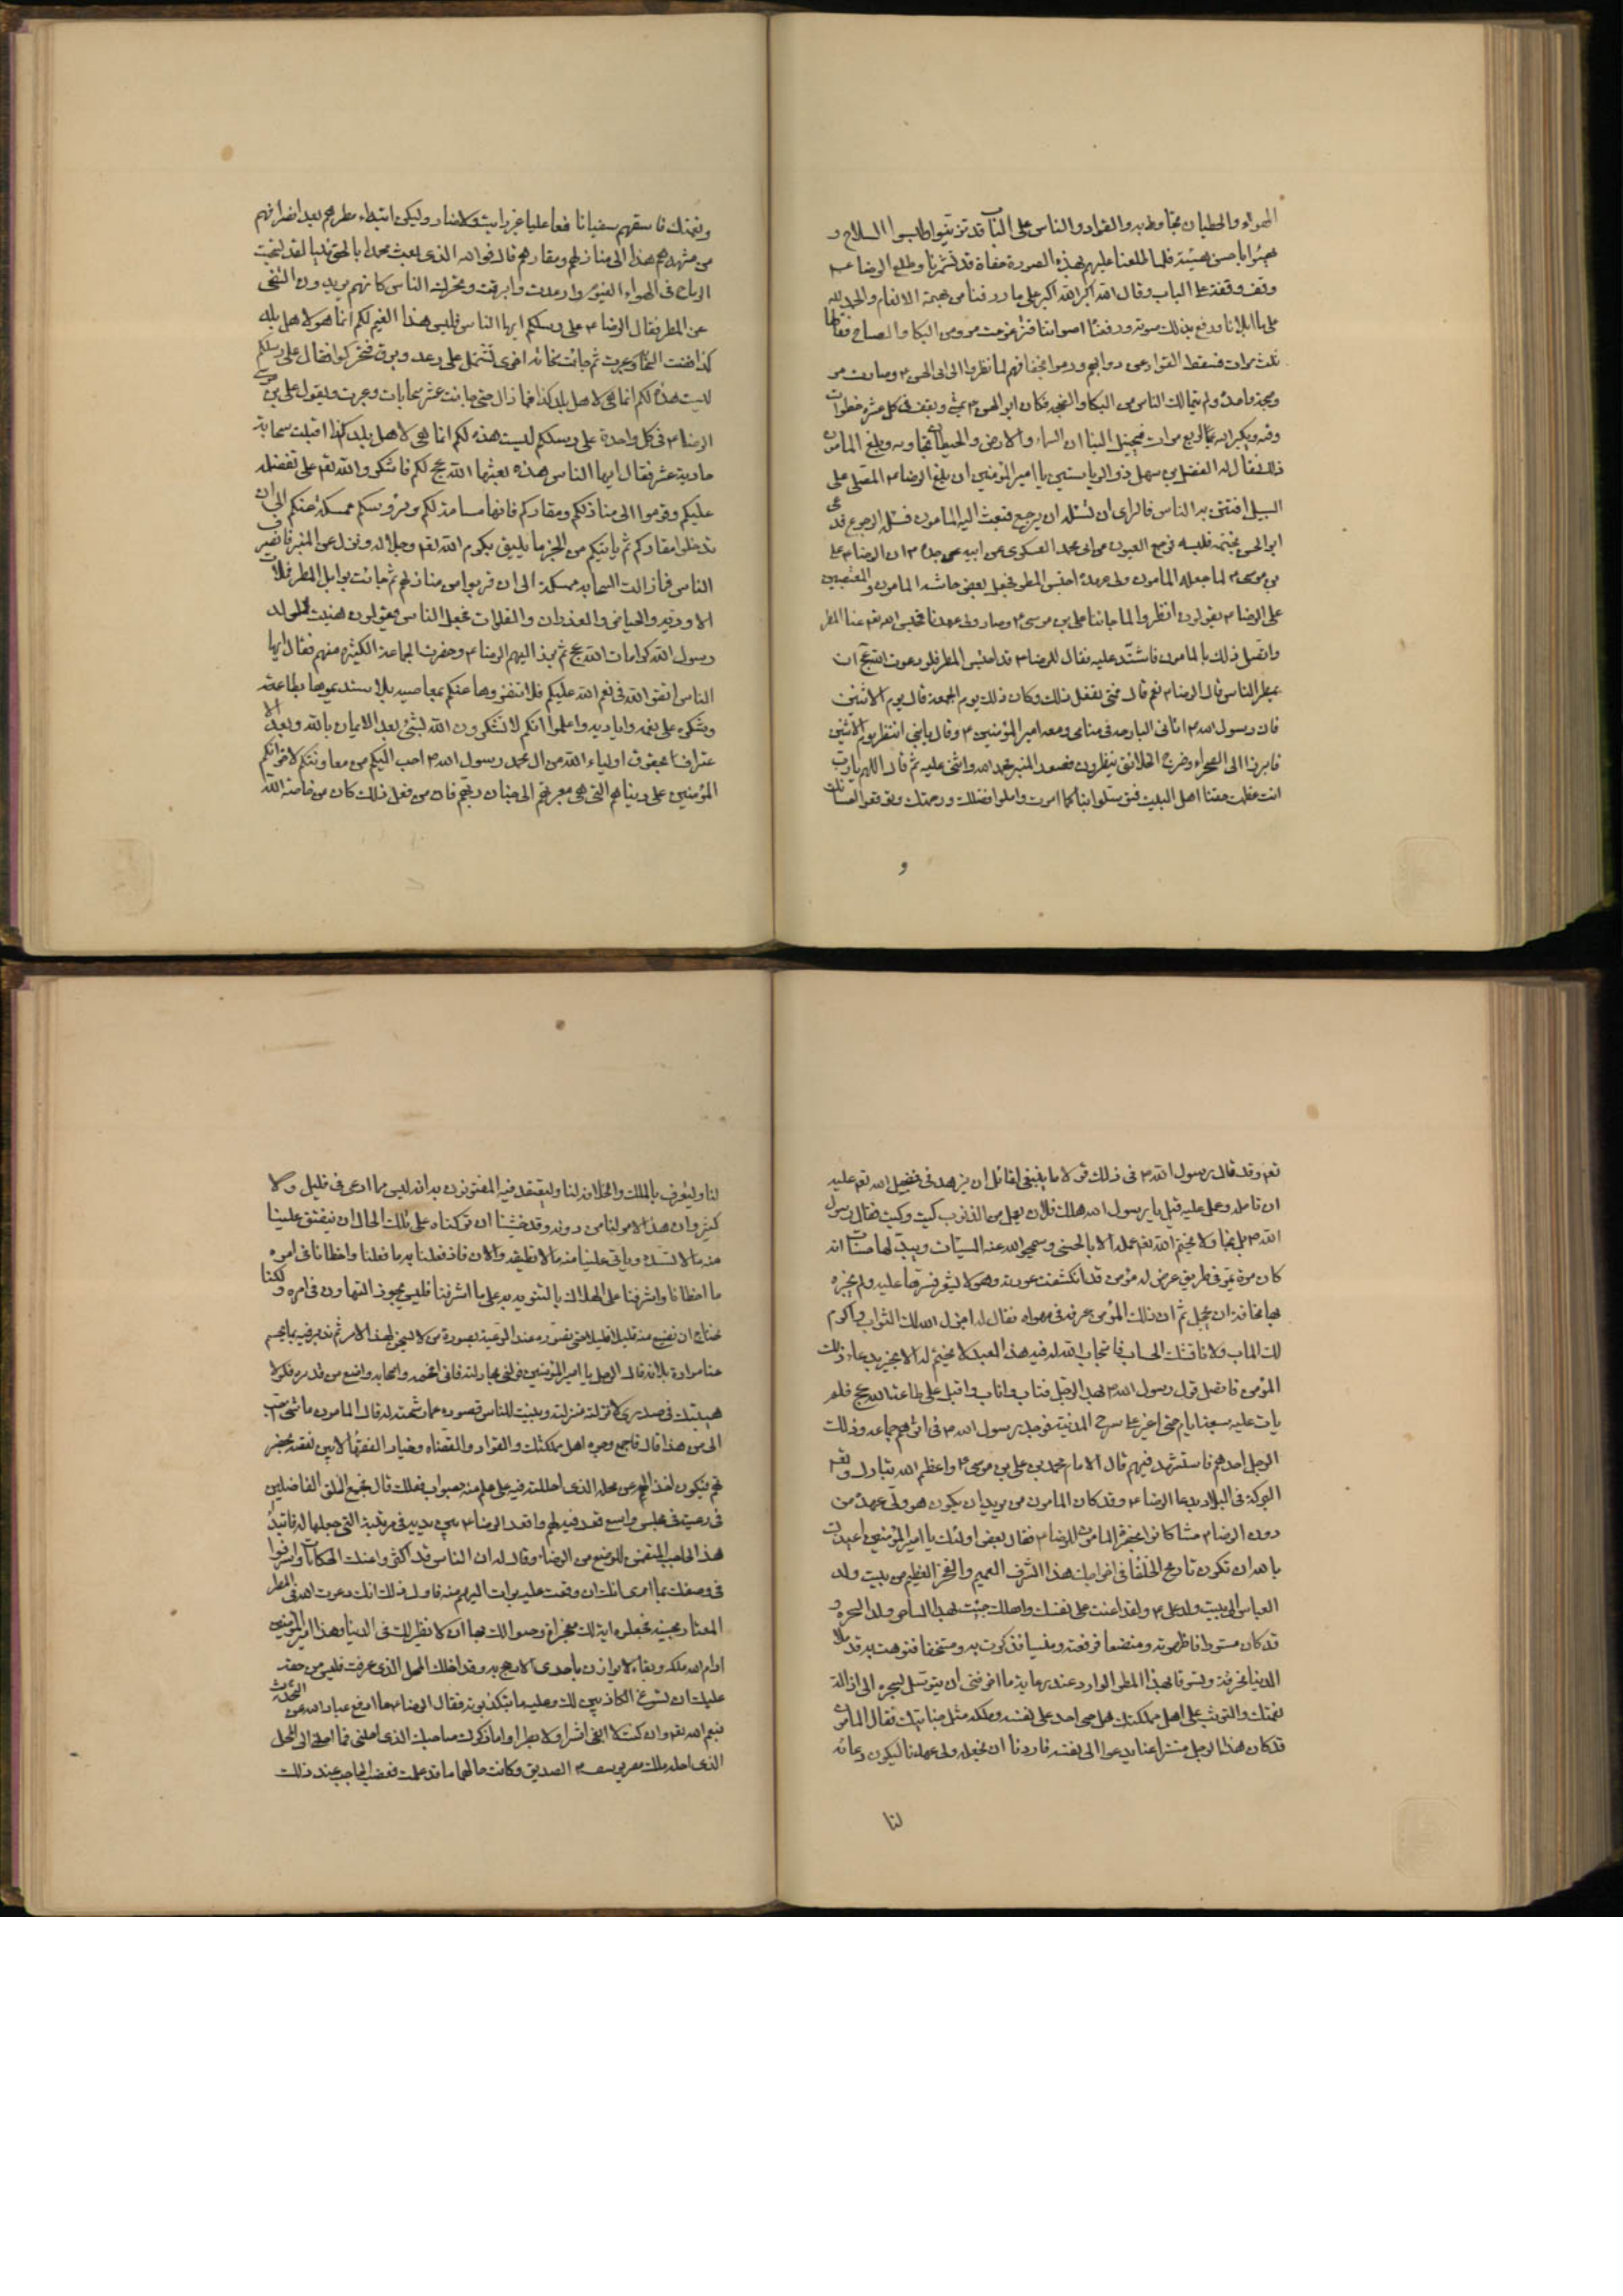 الهواء والحيطان تجاوبه والقواد والناس على الباب قد تزينوا ولبسوا السلاح و
تهيئوا باحسن هيئة فلما طلعنا عليهم بهذه الصورة حفاة قد تشمرنا وطلع الرضا ع
وقف وقفة على الباب وقال الله اكبر الله اكبر على ما رزقنا من بهيمة الانعام والحمد لله
على ما ابلانا ورفع بذلك صوته ورفعنا اصواتنا فتزعزعت مرو من البكا والصياح فقالها
ثلث مرات فسقط القواد عن دوابهم ورموا بخفافهم لما نظروا الى ابى الحسن ع وصارت مرو
ضجة واحدة ولم يتمالك الناس من البكا والضجه فكان ابو الحسن ع يمشى ويقف فى كل عشر خطوات
وقفه ويكبر الله اربع مرات فيخيل الينا ان السماء والارض والحيطان تجاوبه وبلغ المامون
ذلك فقال له الفضل بن سهل ذو الرياستين يا امير المؤمنين ان بلغ الرضا ع المصلى على
السبيل افتتن به الناس فالراى ان تسئله ان يرجع فبعث اليه المامون فسئله الرجوع فدعى
ابو الحسن بخفه فلبسه فرجع العيون عن ابى محمد العسكرى عن ابيه عن جده ع ان الرضا ع على
بن موسى ع لما جعله المامون ولى عهده احتبس المطر فجعل بعض حاشية المامون والمتعصبين
على الرضا ع يقولون انظروا لما جائنا على بن موسى ع وصار ولى عهدنا فحبس الله تعم عنا المطر
واتصل ذلك بالمامون فاشتد عليه فقال للرضا ع قد احتبس المطر فلو دعوت الله عج ان
يمطر الناس قال الرضا ع نعم قال متى تفعل ذلك وكان ذلك يوم الجمعة قال يوم الاثنين
فان رسول الله ص اتانى البارحة فى منامى ومعه امير المؤمنين ع وقال يا بنى انتظر يوم الاثنين
فابرز الى الصحراء وخرج الخلائق ينظرون فصعد المنبر فحمد الله واثنى عليه ثم قال اللهم يا رب
انت عظمت حقنا اهل البيت فتوسلوا بنا كما امرت واملوا فضلك ورحمتك وتوقعوا احسانك
و
ونعمتك فاسقهم سقيا نافعا عاما غير رايث ولا ضار وليكن ابتداء مطرهم بعد انصرافهم
من مشهدهم هذا الى منازلهم ومقارهم قال فو الله الذى بعث محمدا بالحق نبيا لقد نسجت
الرياح فى الهواء الغيوم وارعدت وابرقت وتحرك الناس كانهم يريدون التنحى
عن المطر فقال الرضا ع على رسلكم ايها الناس فليس هذا الغيم لكم انما هو لاهل بلد
كذا فمضت السحابة وعبرت ثم جائت سحابة اخرى تشتمل على رعد وبرق فتحركوا فقال على رسلكم
ليست هذه لكم انما هى لاهل بلد كذا فما زال حتى جائت عشر سحابات وعبرت ويقول على بن موسى
الرضا ع فى كل واحدة على رسلكم ليست هذه لكم انما هى لاهل بلد كذا اقبلت سحابة
حادية عشر فقال ايها الناس هذه بعثها الله عج لكم فاشكروا الله تعم على تفضله
عليكم وقوموا الى منازلكم ومقاركم فانها مسامتة لكم ولرؤسكم ممسكة عنكم الى ان
تدخلوا مقاركم ثم ياتيكم من الخير ما يليق بكرم الله تعم وجلاله ونزل عن المنبر فانصرف
الناس فما زالت السحابة ممسكة الى ان قربوا من منازلهم ثم جائت بوابل المطر فملات
الاودية والحياض والغدران والفلوات فجعل الناس يقولون هنيئا لولد
رسول الله كرامات الله عج ثم برز اليهم الرضا ع وحضرت الجماعة الكثيرة منهم فقال ايها
الناس اتقوا الله فى نعم الله عليكم فلا تنفروها عنكم بمعاصيه بل استديموها بطاعته
وشكره على نعمه واياديه واعلموا انكم لا تشكرون الله بشئ بعد الايمان بالله وبعد الا
عتراف بحقوق اولياء الله من ال محمد رسول الله ص احب اليكم من معاونتكم لاخوانكم
المؤمنين على دنياهم التى هى معبر لهم الى جنان ربهم فان من فعل ذلك كان من خاصة الله
تعم وقد قال رسول الله ص فى ذلك قولا ما ينبغى لقائل ان يزهد فى فضل الله تعم عليه
ان تامله وعمل عليه قيل يا رسول الله هلك فلان يعمل من الذنوب كيت وكيت فقال رسول
الله ص بل نجا ولا يختم الله تعم عمله الا بالحسنى وسيمحو الله عنه السيئات ويبدلها حسنات انه
كان مرة يمر فى طريق عرض له مؤمن قد انكشفت عورته وهو لا يشعر فسترها عليه ولم يخبره
بها مخافة ان يخجل ثم ان ذلك المؤمن عرفه فى مهواه فقال له اجزل الله لك الثواب واكرم
لك الماب ولا ناقشك الحساب فاستجاب الله له فيه فهذا العبد لا يختم له الا بخير بدعاء ذلك
المؤمن فاتصل قول رسول الله ص بهذا الرجل فتاب واناب واقبل على طاعة الله عج فلم
يات عليه سبعة ايام حتى اغير على سرح المدينة فوجه رسول الله ص فى اثرهم جماعة وذلك
الرجل احدهم فاستشهد فيهم قال الامام محمد بن على بن موسى ع واعظم الله تبارك وتعم
البركة فى البلاد بدعا الرضا ع وقد كان المامون من يريد ان يكون هو ولى عهده من
دون الرضا ع وحساد كانوا بحضرة المامون للرضا ع فقال بعض اولئك يا امير المؤمنين اعيذك
بالله ان تكون تاريخ الخلفا فى اخراجك هذا الشرف العميم والفخر العظيم من بيت ولد
العباس الى بيت ولد على ع ولقد اعنت على نفسك واهلك جئت بهذا الساحر ولد السحرة و
قد كان مستورا فاظهرته ومتضعا فرفعته ومنسيا فذكرت به ومستخفا فنوهت به قد ملا
الدنيا مخرقة وتشوقا بهذا المطر الوارد عند دعائه ما اخوفنى ان يتوسل بسحره الى ازالة
نعمتك والتوثب على اهل مملكتك هل جنى احد على نفسه وملكه مثل جنايتك فقال المامون
قد كان هذا الرجل مستترا عنا يدعوا الى نفسه فاردنا ان نجعله ولى عهدنا ليكون دعائه
لنا
لنا وليعرف بالملك والخلافة لنا وليعتقد فيه المفتونون به انه ليس مما ادعى فى قليل ولا
كثير وان هذا الامر لنا من دونه وقد خشينا ان تركناه على تلك الحال ان ينفتق علينا
منه ما لا نسده وياتى علينا منه ما لا نطيقه والان فاذ فعلنا به ما فعلنا واخطانا فى امره
ما اخطانا واشرفنا على الهلاك بالتنويه به على ما اشرفنا فليس يجوز التهاون فى امره ولكنا
نحتاج ان نضع منه قليلا قليلا حتى نصوره عند الرعية بصورة من لا يستحق لهذا الامر ثم ندبر فيه بما يحسم
عنا مواد بلائه قال الرجل يا امير المؤمنين فولنى مجادلته فانى افحمه واصحابه واضع من قدره فلولا
هيبتك فى صدرى لانزلته منزلته وبينت للناس قصوره عما رشحته له قال المامون ما شئ احب
الى من هذا قال فاجمع وجوه اهل مملكتك والقواد والقضاة وخيار الفقها لابين نقصه بحضرتهم
فيكون اخذا له عن محله الذى احللته فيه على علم منهم بصواب فعلك قال فجمع الخلق الفاضلين
من رعيته فى مجلس واسع قعد فيه لهم واقعد الرضا ع بين يديه فى مرتبته التى جعلها له فابتدأ
هذا الحاجب المتضمن للوضع من الرضا ع وقال له ان الناس قد اكثروا عنك الحكايات واسرفوا
فى وصفك بما ارى انك ان وقفت عليه برئت اليهم منه فاول ذلك انك دعوت الله فى المطر
المعتاد مجيئه فجعلوه اية لك معجزة اوجبوا لك بها ان لا نظير لك فى الدنيا وهذا امير المؤمنين
ادام الله ملكه وبقاءه لا يوازن باحد الا رجح به وقد احلك المحل الذى عرفت فليس من حقه
عليك ان تسوغ الكاذبين لك وعليه ما يتكذبونه فقال الرضا ع ما ادفع عباد الله عن التحدث
بنعم الله تعم وان كنت لا ابغى اشرا ولا بطرا واما ذكرك صاحبك الذى احلنى فما احلنى الا المحل
الذى احله ملك مصر يوسف ع الصديق وكانت حالهما ما قد علمت فغضب الحاجب عند ذلك